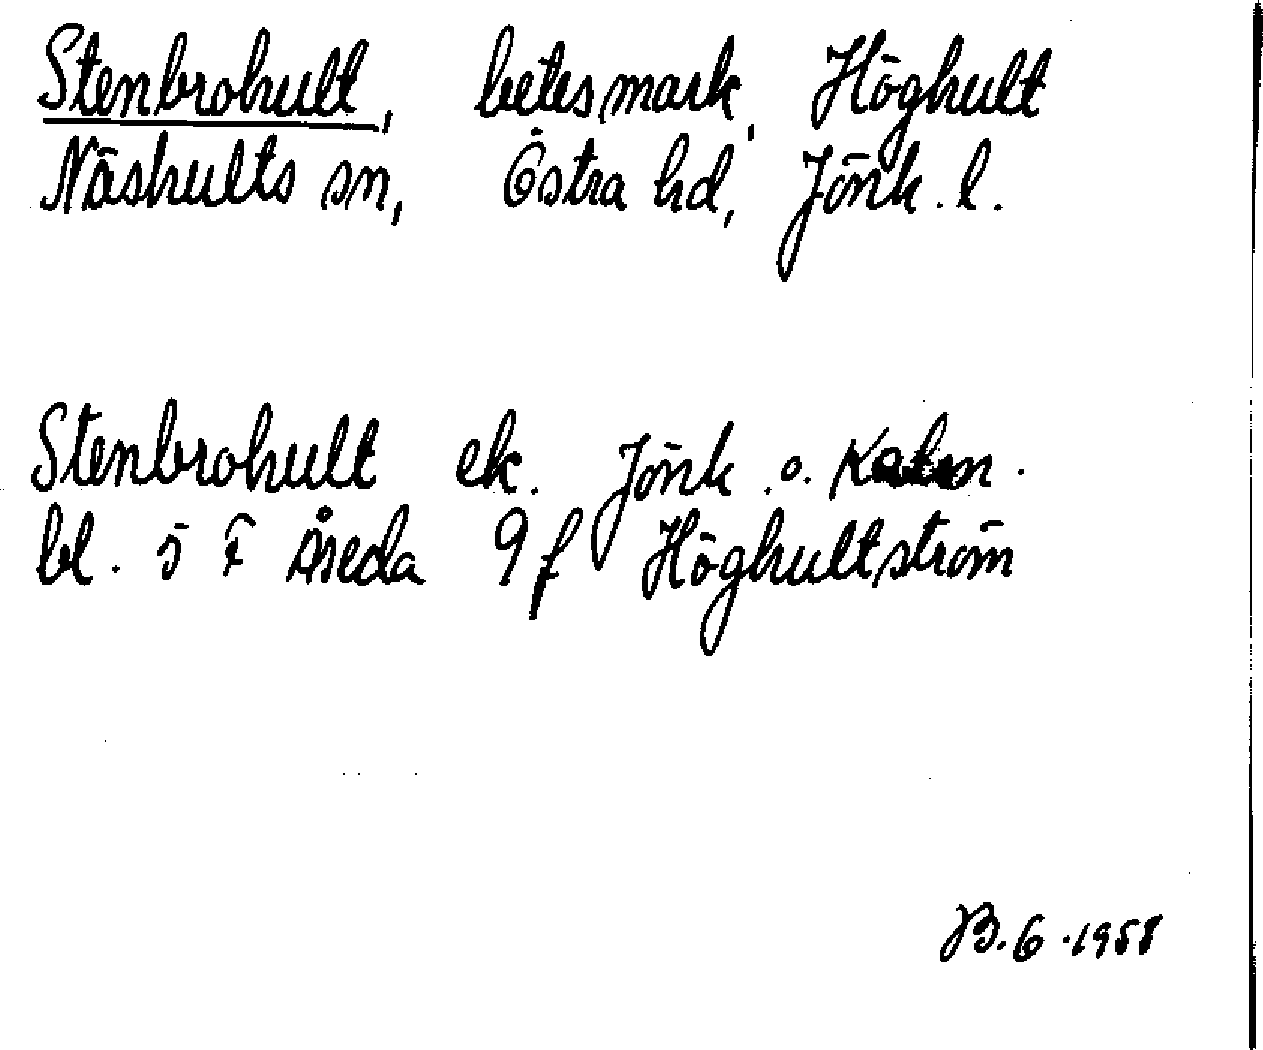 Stenbrohult, betesmark, Höghult
Näshults sn, Östra hd, Jönk. l.
Stenbrohult ek. Jönk. o. Kalm.
bl. 5 F Åseda 9 f Höghultström
B. G. 1958